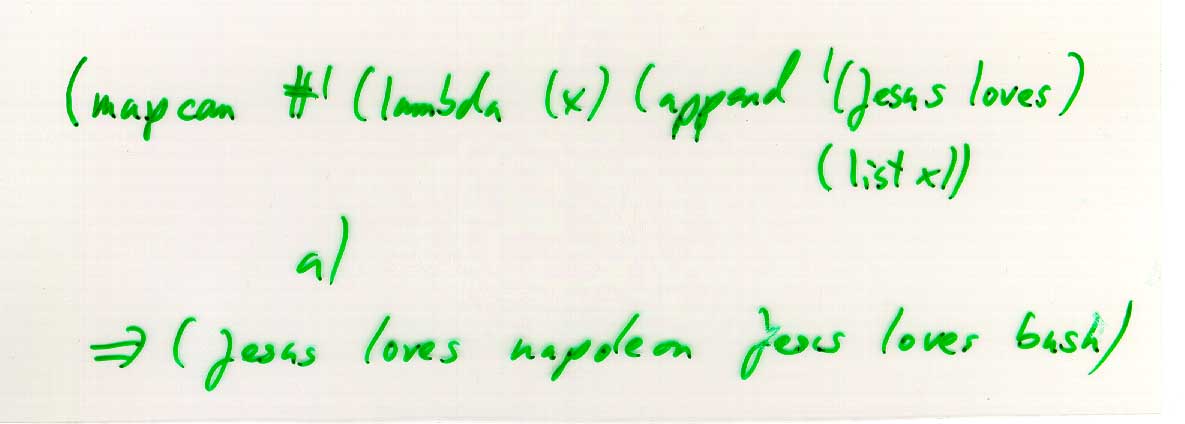 (mapcan #'(lambda (x) (append '(Jesus loves)
(list x))
a)
⇒ (Jesus loves napoleon Jesus loves bush)